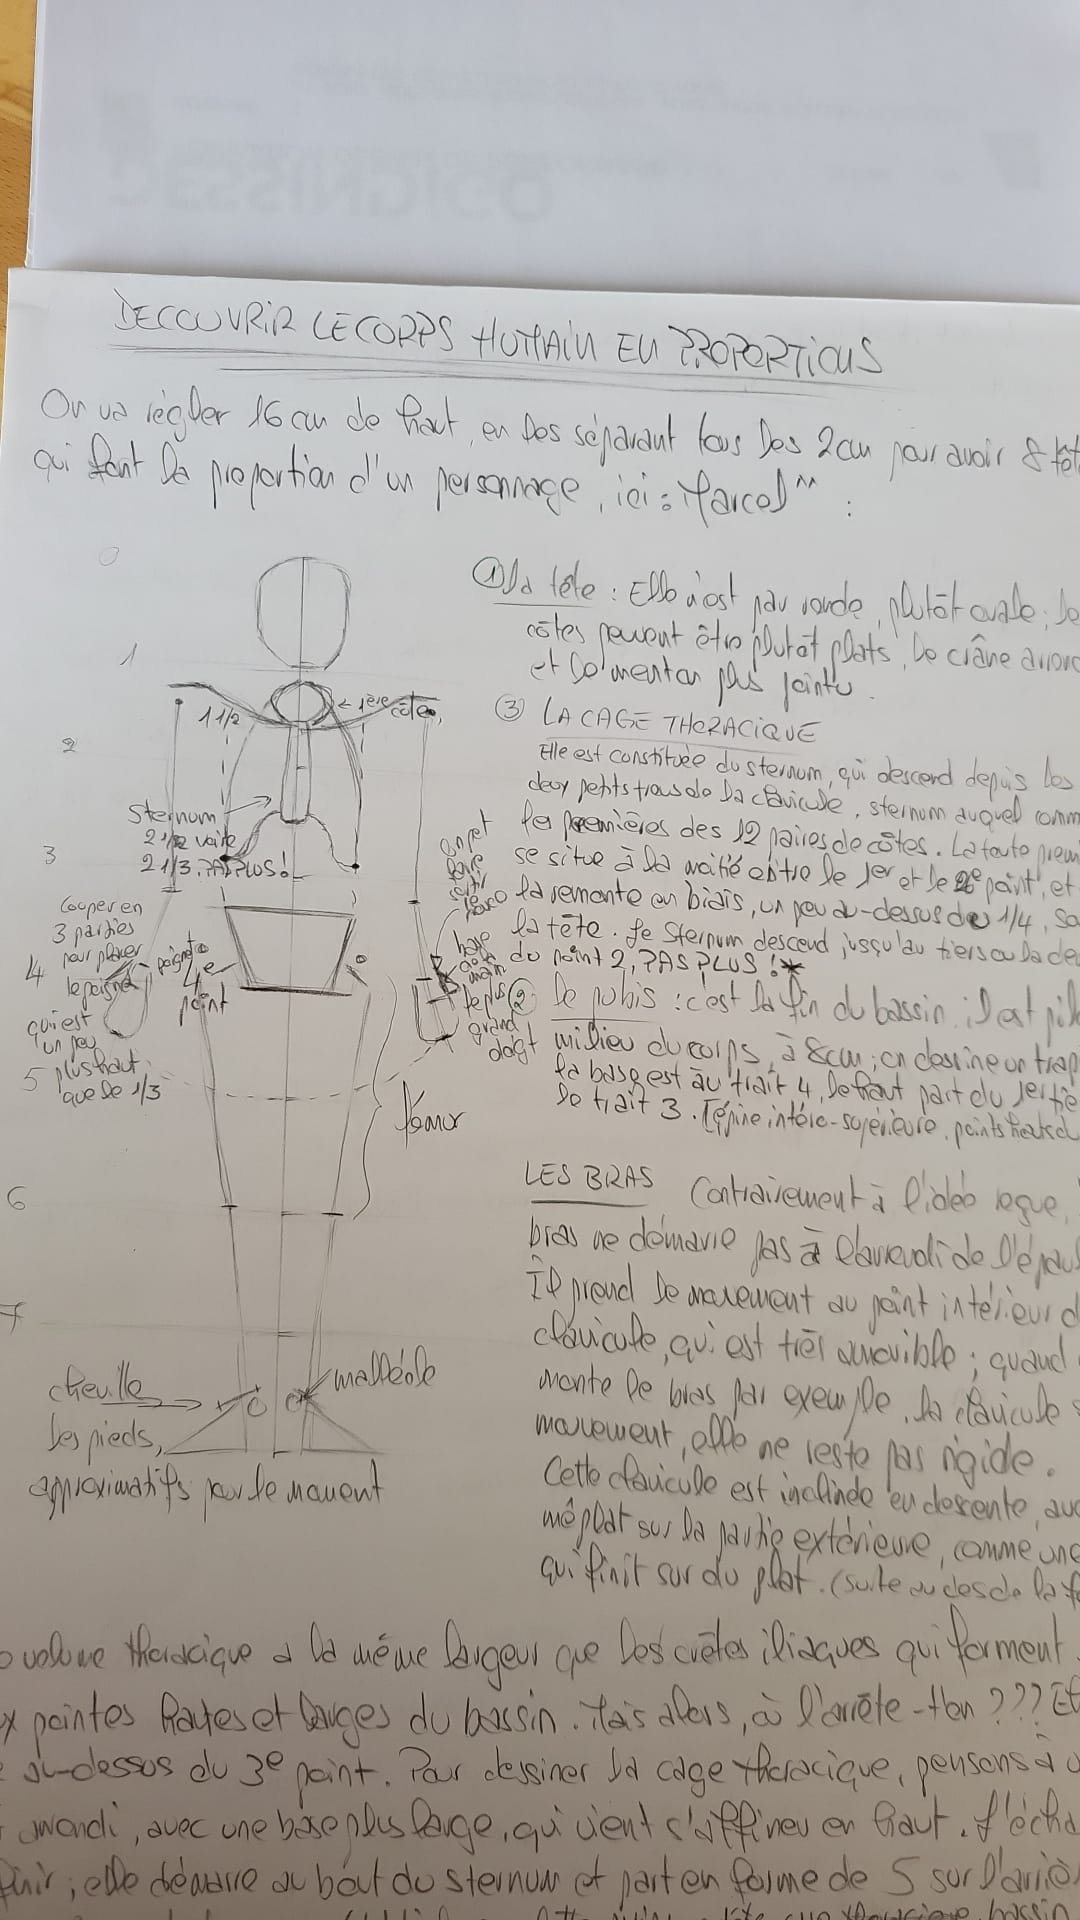 DECOUVRIR LE CORPS HUMAIN EN PROPORTIONS
On va régler 16 cm de haut, en les séparant tous les 2 cm pour avoir 8 têt
qui font la proportion d'un personnage, ici : Marcel ^^ :
0
1
2
3
4
5
6
7
1 1/2
← 1ère côte
Sternum
2 1/2 voire
2 1/3. PAS PLUS !
Couper en
3 parties
pour placer
le poignet
qui est
un peu
plus haut
que le 1/3
poignet
4e
point
on peut
faire
sortir
le plus
grand
doigt
fémur
cheville
malléole
les pieds,
approximatifs pour le moment
① La tête : Elle n'est pas ronde, plutôt ovale ; le
côtés peuvent être plutôt plats, le crâne arron
et le menton plus pointu.
③ LA CAGE THORACIQUE
Elle est constituée du sternum, qui descend depuis les
deux petits trous de la clavicule, sternum auquel comm
les premières des 12 paires de côtes. La toute premi
se situe à la moitié entre le 1er et le 2e point, et
la remonte en biais, un peu au-dessus de 1/4, so
la tête. Le Sternum descend jusqu'au tiers ou la de
du point 2, PAS PLUS !*
② Le pubis : c'est la fin du bassin, il est pil
milieu du corps, à 8cm ; on dessine un trap
la base est au trait 4, le haut part du 1er tie
le trait 3.
LES BRAS Contrairement à l'idée reçue,
bras ne démarre pas à l'arrondi de l'épau
Il prend le mouvement au point intérieur d
clavicule, qui est très amovible ; quand
monte le bras par exemple, la clavicule s
mouvement, elle ne reste pas rigide.
Cette clavicule est inclinée en descente, au
méplat sur la partie extérieure, comme une
qui finit sur du plat. (suite au
volume thoracique a la même largeur que les crêtes iliaques qui forment
x pointes hautes et larges du bassin. Mais alors, où l'arrête-t-on ??? Et
au-dessus du 3e point. Pour dessiner la cage thoracique, pensons à u
arrondi, avec une base plus large, qui vient s'affiner en haut. L'écha
finir ; elle démarre au bout du sternum et part en forme de S sur l'arriè